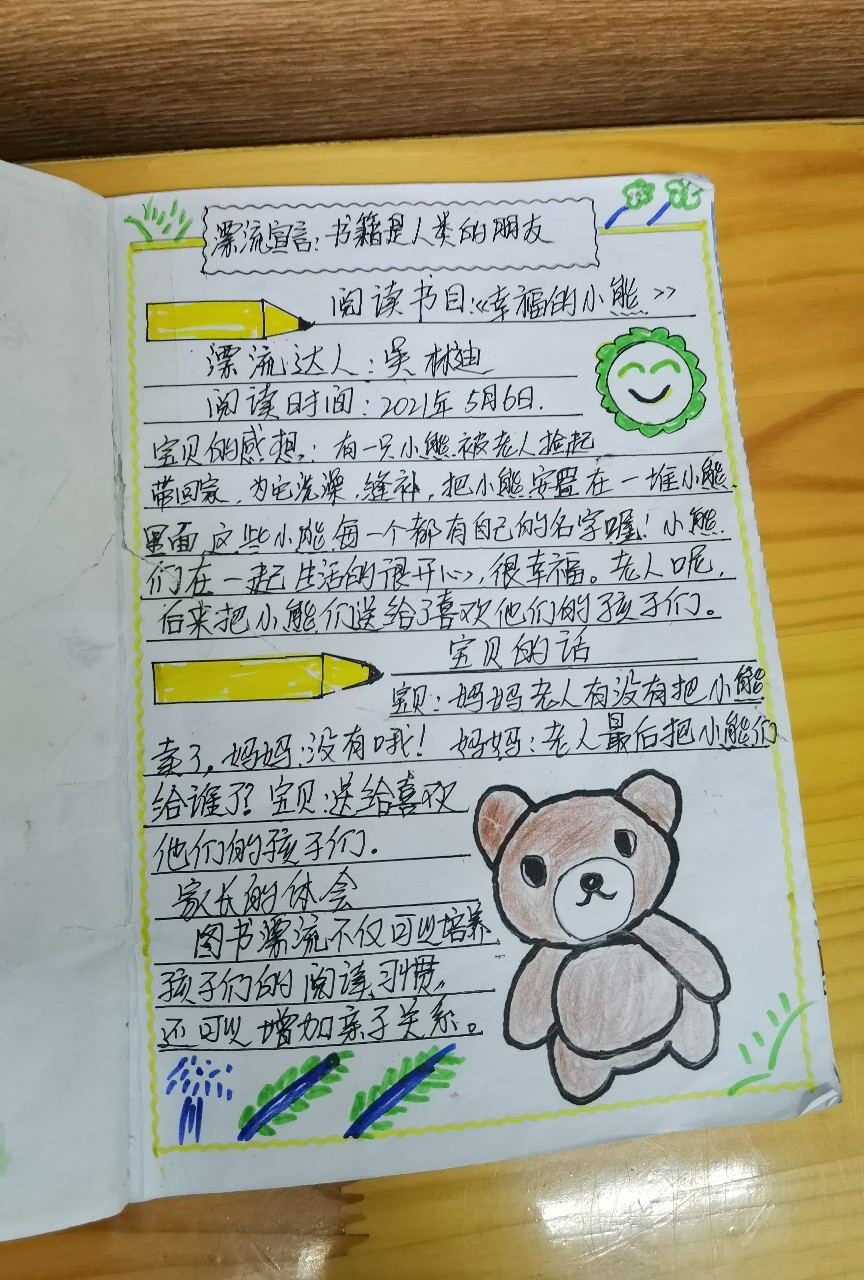 漂流宣言：书籍是人类的朋友
阅读书目：《幸福的小熊》
漂流达人：吴林迪
阅读时间：2021年5月6日.
宝贝的感想：有一只小熊被老人捡起
带回家，为它洗澡，缝补，把小熊安置在一堆小熊
里面，这些小熊每一个都有自己的名字喔！小熊
们在一起生活的很开心，很幸福。老人呢，
后来把小熊们送给了喜欢他们的孩子们。
宝贝的话
宝贝：妈妈老人有没有把小熊
卖了，妈妈：没有哦！ 妈妈：老人最后把小熊们
给谁了？宝贝：送给喜欢
他们的孩子们。
家长的体会
图书漂流不仅可以培养
孩子们的阅读习惯，
还可以增加亲子关系。